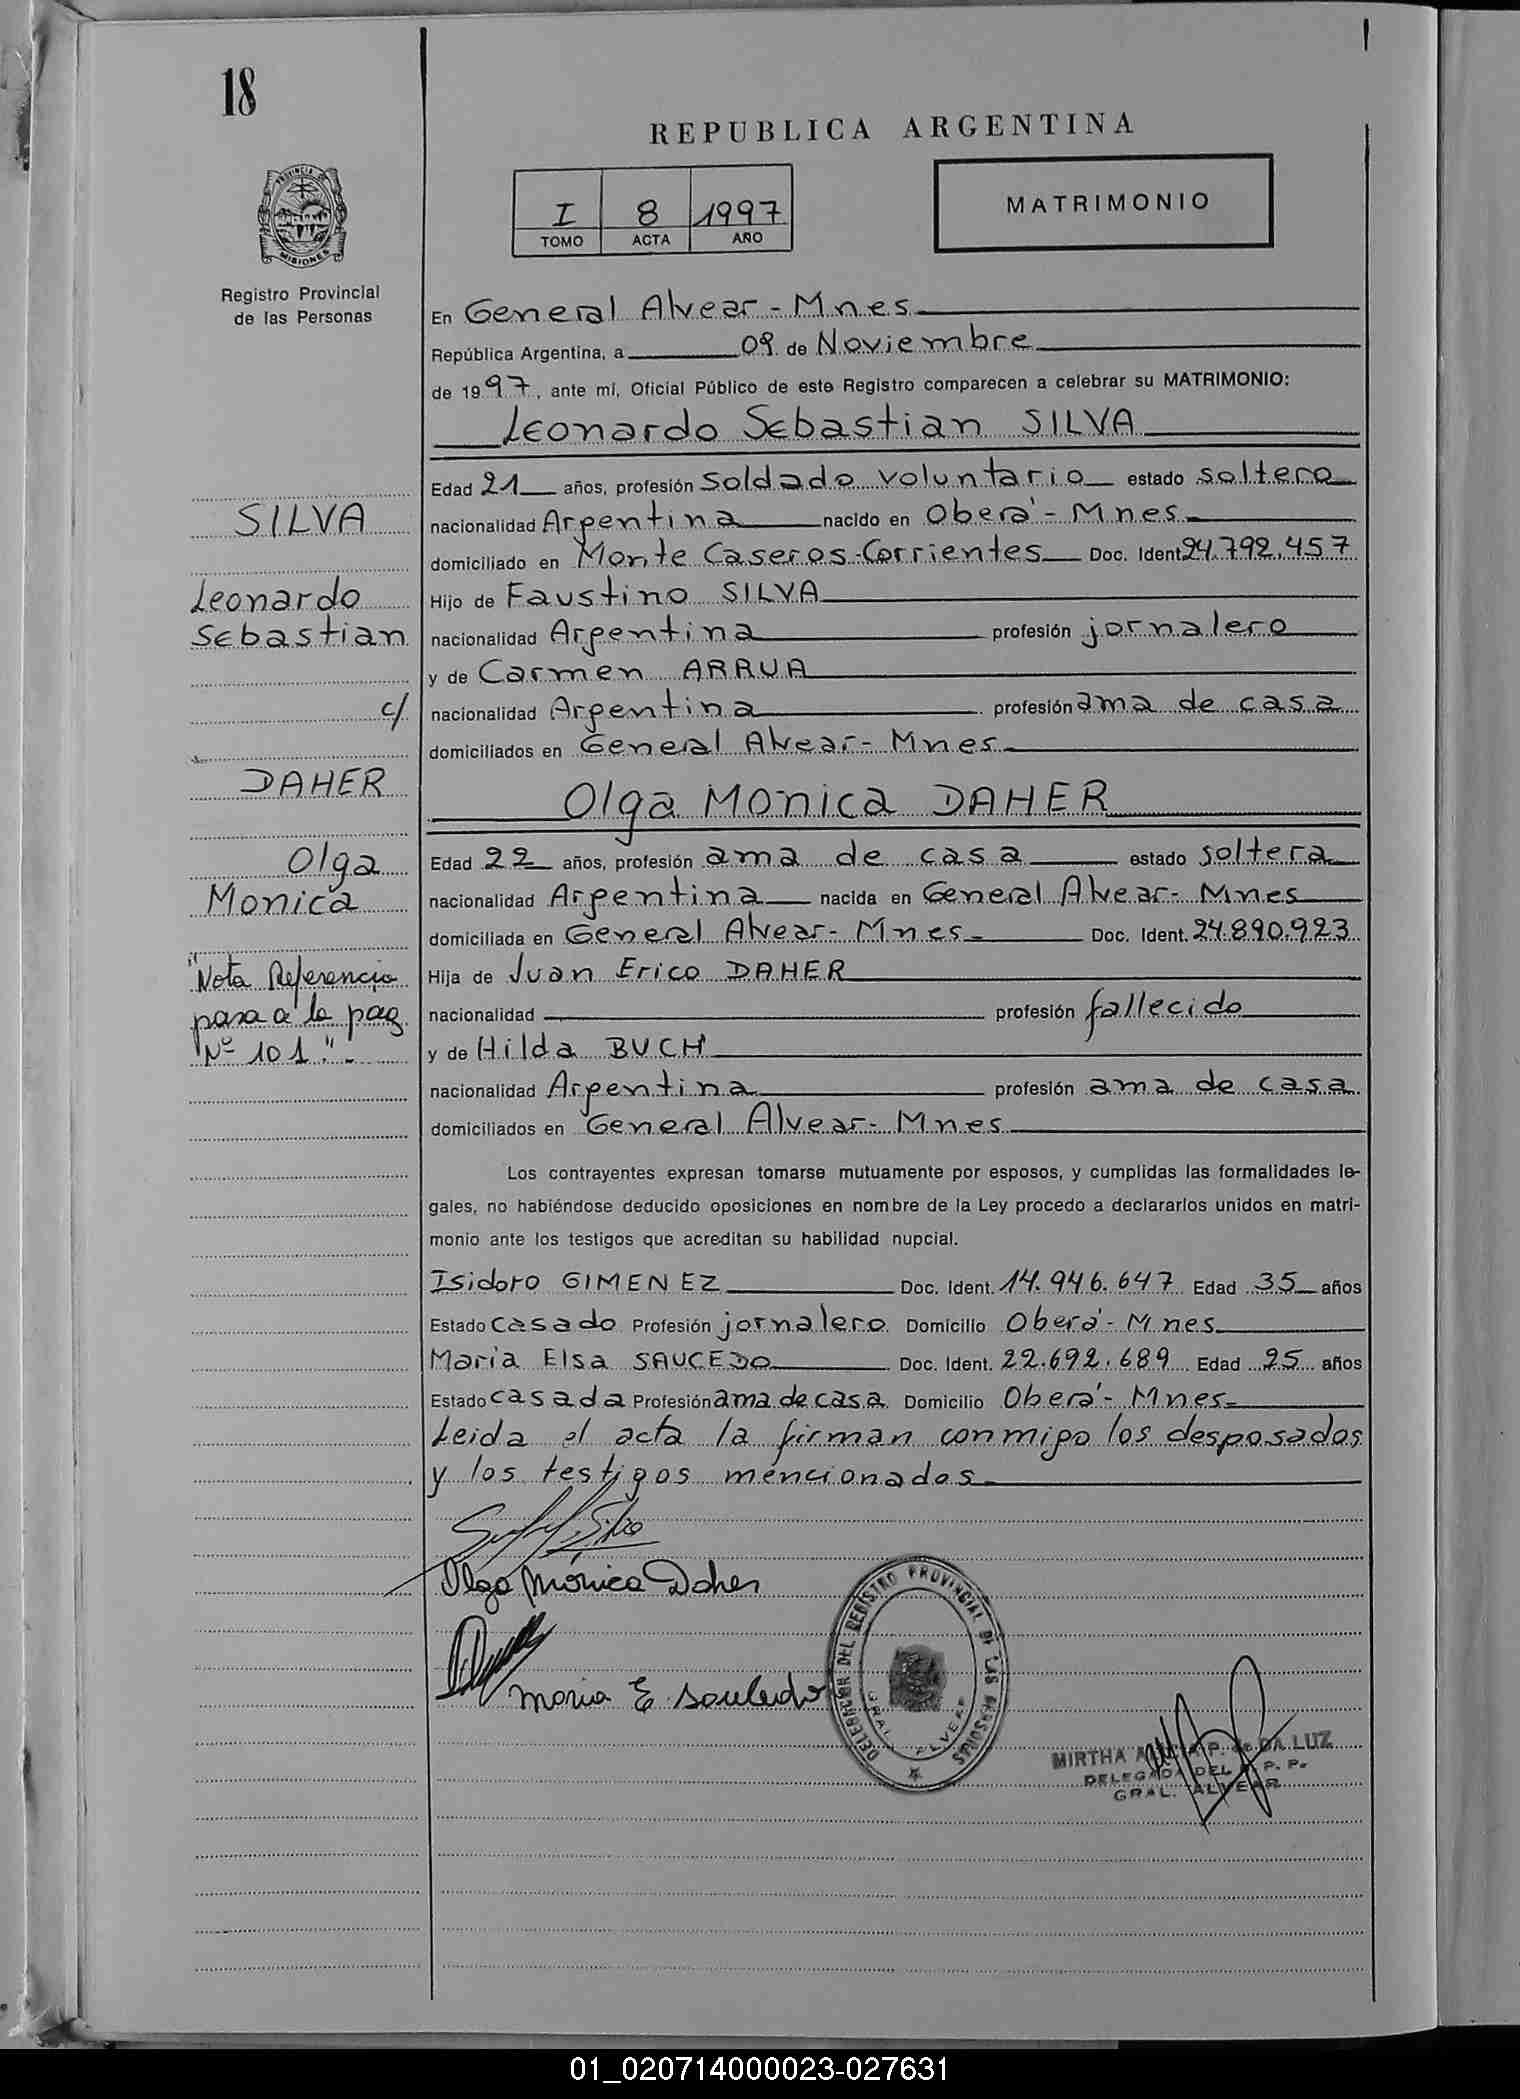 18
REPUBLICA ARGENTINA
I 8 1997
TOMO ACTA AÑO
MATRIMONIO
PROVINCIA DE
MISIONES
Registro Provincial
de las Personas
En General Alvear - Mnes
República Argentina, a 09 de Noviembre
de 1997, ante mí, Oficial Público de este Registro comparecen a celebrar su MATRIMONIO:
Leonardo Sebastian SILVA
Edad 21 años, profesión soldado voluntario estado soltero
nacionalidad Argentina nacido en Oberá - Mnes
domiciliado en Monte Caseros - Corrientes Doc. Ident. 24.792.457
Hijo de Faustino SILVA
nacionalidad Argentina profesión jornalero
y de Carmen ARRUA
nacionalidad Argentina profesión ama de casa
domiciliados en General Alvear - Mnes
Olga Monica DAHER
Edad 22 años, profesión ama de casa estado soltera
nacionalidad Argentina nacida en General Alvear - Mnes
domiciliada en General Alvear - Mnes - Doc. Ident. 24.890.923
Hija de Juan Erico DAHER
nacionalidad profesión fallecido
y de Hilda BUCH
nacionalidad Argentina profesión ama de casa
domiciliados en General Alvear - Mnes
SILVA
Leonardo
Sebastian
c/
DAHER
Olga
Monica
"Nota Referencia
pasa a la pag
Nº 101".-
Los contrayentes expresan tomarse mutuamente por esposos, y cumplidas las formalidades le-
gales, no habiéndose deducido oposiciones en nombre de la Ley procedo a declararlos unidos en matri-
monio ante los testigos que acreditan su habilidad nupcial.
Isidoro GIMENEZ Doc. Ident. 14.946.647 Edad 35 años
Estado casado Profesión jornalero Domicilio Oberá - Mnes
Maria Elsa SAUCEDO Doc. Ident. 22.692.689 Edad 25 años
Estado casada Profesión ama de casa Domicilio Oberá - Mnes -
Leida el acta la firman conmigo los desposados
y los testigos mencionados
Silva
Olga Mónica Daher
Maria E Sauledo
DELEGACION DEL REGISTRO PROVINCIAL DE LAS PERSONAS
GRAL ALVEAR
MIRTHA ALICIA P. de DA LUZ
DELEGADA DEL R. P. P.
GRAL. ALVEAR
01_020714000023-027631